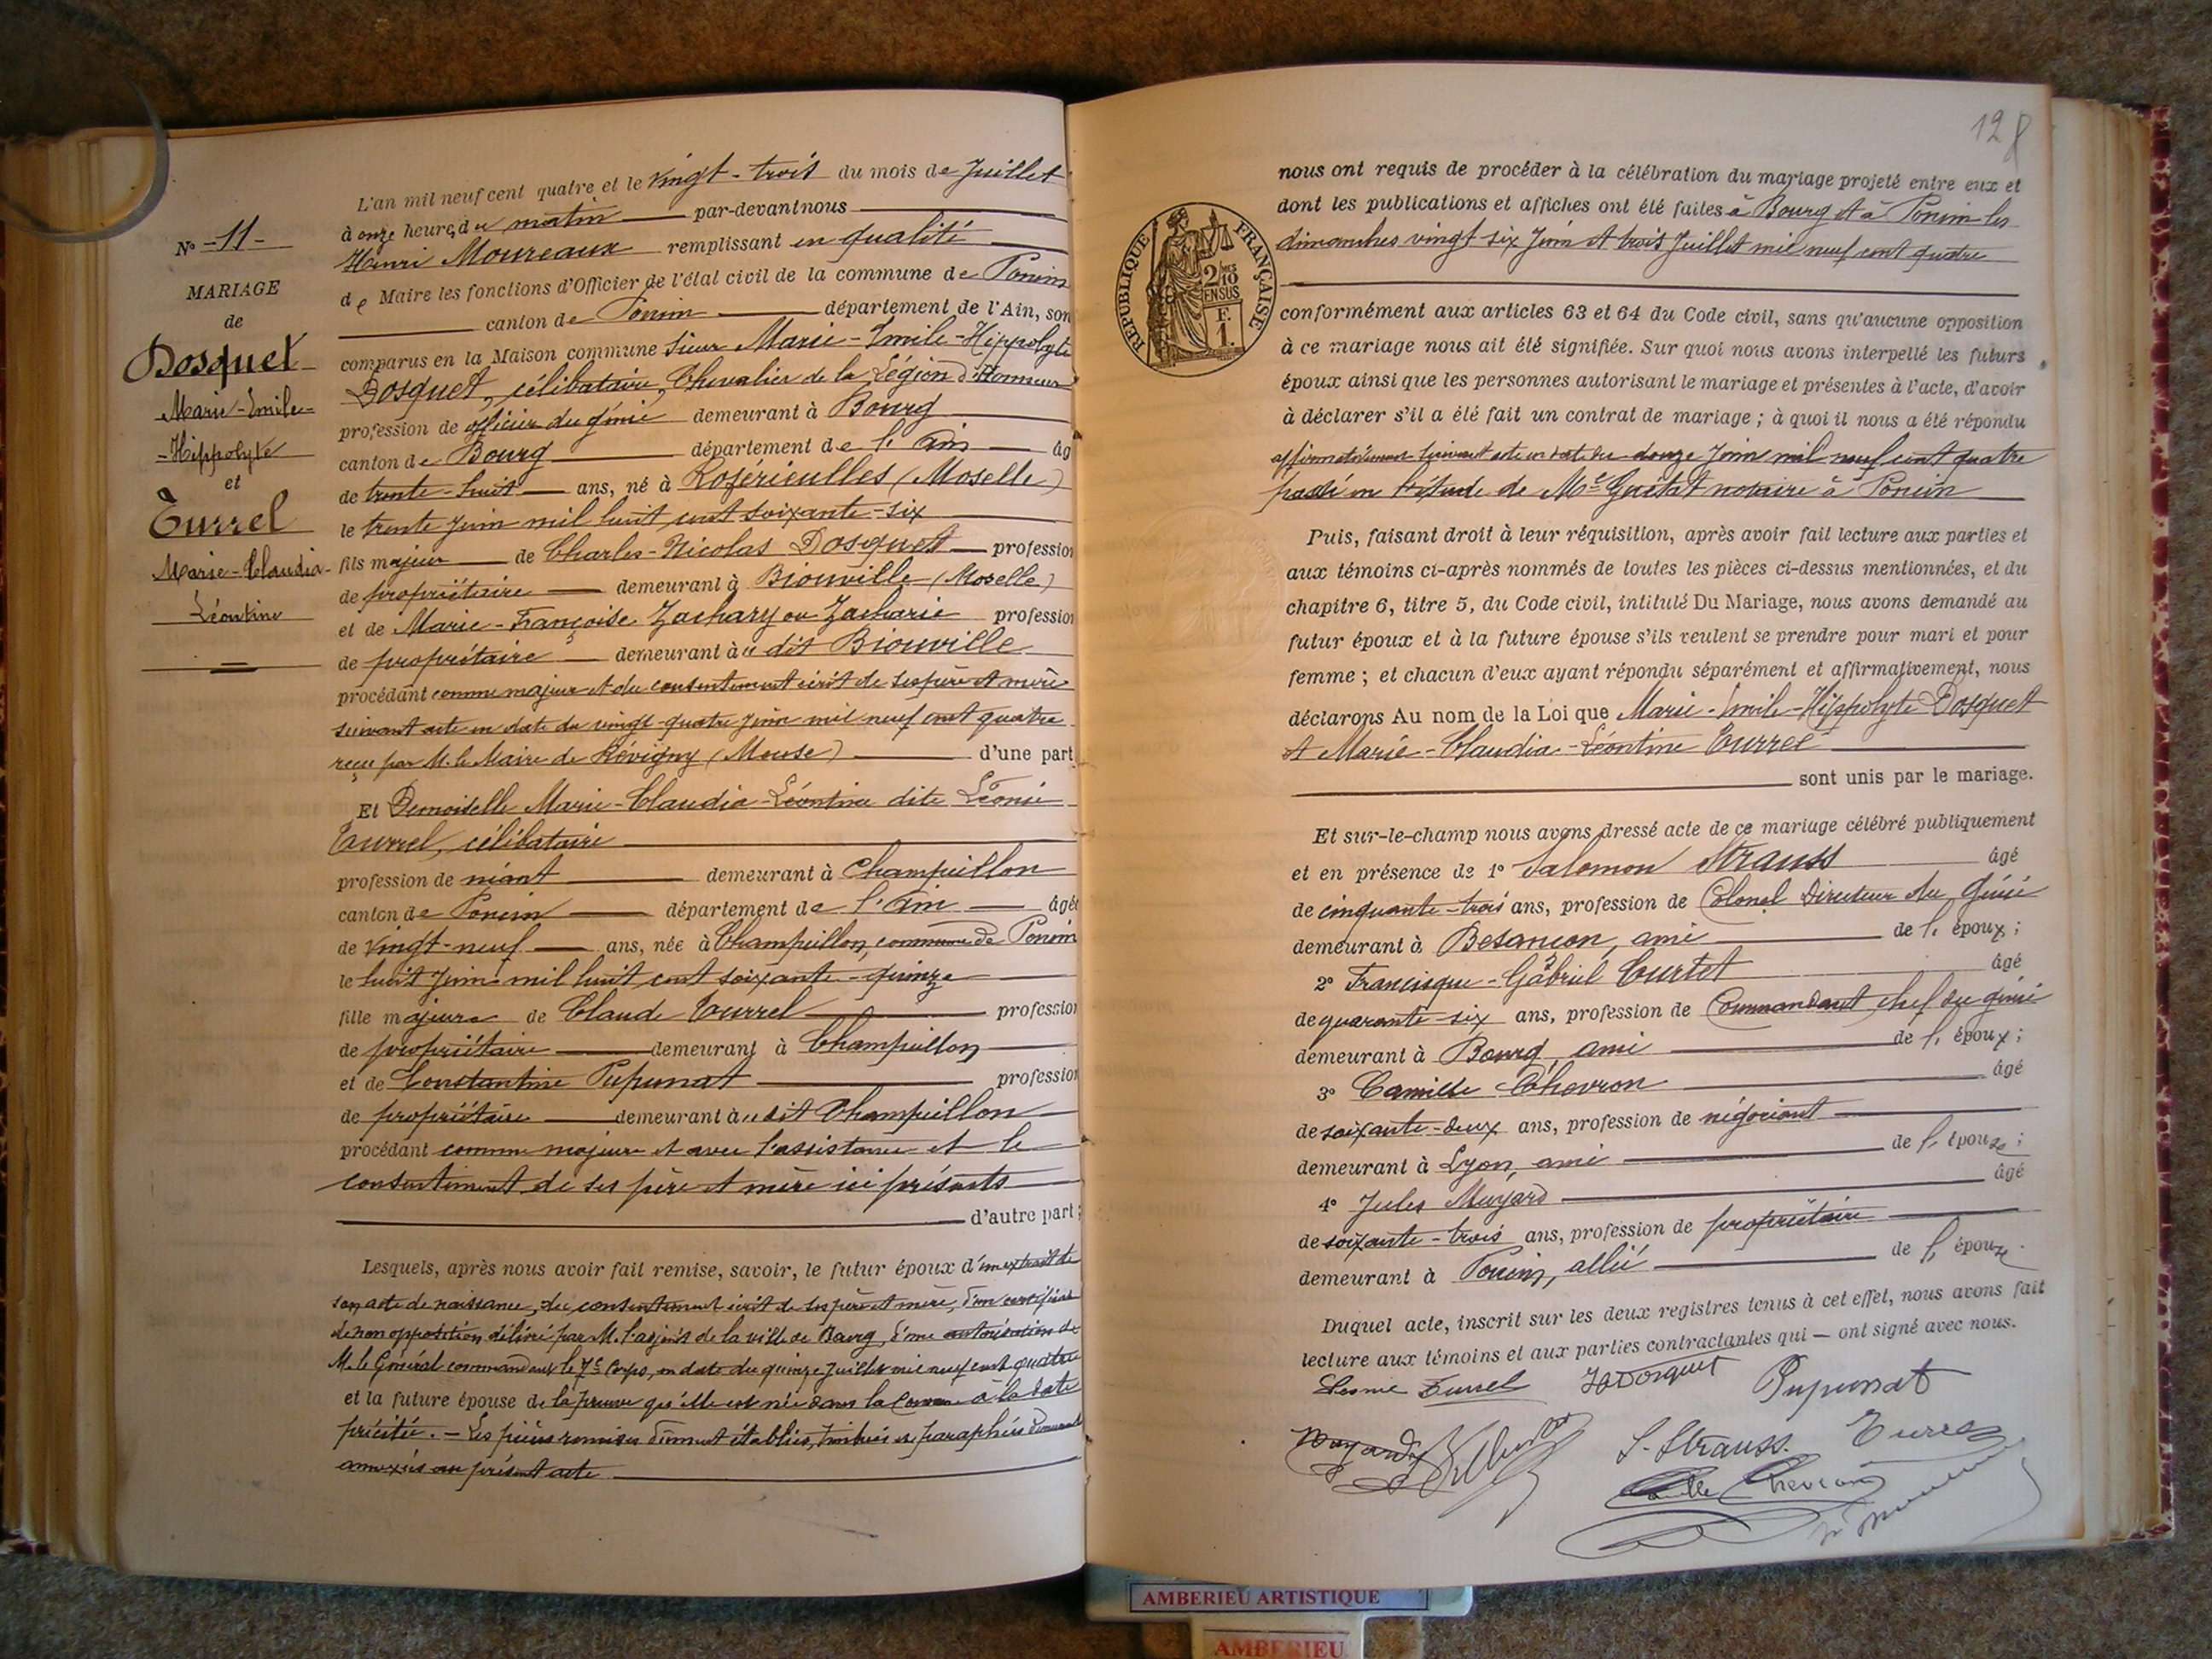 N° -11-
MARIAGE
de
Dosquet
Marie-Emile-
-Hippolyte
et
Turrel
Marie-Claudia-
Léontine
L'an mil neuf cent quatre et le vingt-trois du mois de Juillet
à onze heures du matin par-devant nous
Henri Moureaux remplissant en qualité
de Maire les fonctions d'Officier de l'état civil de la commune de Poncin
canton de Poncin département de l'Ain, son
comparus en la Maison commune Sieur Marie-Emile-Hippolyte
Dosquet, célibataire, Chevalier de la Légion d'Honneur
profession de officier du génie demeurant à Bourg
canton de Bourg département de l'Ain âg
de trente-huit ans, né à Rozérieulles (Moselle)
le trente Juin mil huit cent soixante-six
fils majeur de Charles-Nicolas Dosquet profession
de propriétaire demeurant à Bionville (Moselle)
et de Marie-Françoise Zachary ou Zacharie profession
de propriétaire demeurant à u dit Bionville
procédant comme majeur et du consentement écrit de ses père et mère
suivant acte en date du vingt-quatre Juin mil neuf cent quatre
reçu par M. le Maire de Révigny (Meuse) d'une part
Et Demoiselle Marie-Claudia-Léontine dite Léonie
Turrel, célibataire
profession de néant demeurant à Champeillon
canton de Poncin département de l'Ain âgé
de vingt-neuf ans, née à Champeillon, commune de Poncin
le huit Juin mil huit cent soixante-quinze
fille majeure de Claude Turrel profession
de propriétaire demeurant à Champeillon
et de Constantine Pupunat profession
de propriétaire demeurant à u dit Champeillon
procédant comme majeure et avec l'assistance et le
consentement de ses père et mère ici présents
d'autre part ;
Lesquels, après nous avoir fait remise, savoir, le futur époux d'un extrait de
son acte de naissance, du consentement écrit de ses père et mère, d'un certificat
de non opposition délivré par M. l'adjoint de la ville de Bourg, d'une autorisation de
M. le Général commandant le 7e Corps, en date du quinze Juillet mil neuf cent quatre
et la future épouse de la preuve qu'elle est née dans la Commune à la date
précitée. - Les pièces remises dûment établies, timbrées et paraphées demeurent
annexées au présent acte
128
RÉPUBLIQUE FRANÇAISE
2/10 MES
EN SUS
F.
1.
nous ont requis de procéder à la célébration du mariage projeté entre eux et
dont les publications et affiches ont été faites à Bourg et à Poncin les
dimanches vingt-six Juin et trois Juillet mil neuf cent quatre
conformément aux articles 63 et 64 du Code civil, sans qu'aucune opposition
à ce mariage nous ait été signifiée. Sur quoi nous avons interpellé les futurs
époux ainsi que les personnes autorisant le mariage et présentes à l'acte, d'avoir
à déclarer s'il a été fait un contrat de mariage ; à quoi il nous a été répondu
affirmativement suivant acte en date du douze Juin mil neuf cent quatre
passé en l'étude de Me Guétat notaire à Poncin
Puis, faisant droit à leur réquisition, après avoir fait lecture aux parties et
aux témoins ci-après nommés de toutes les pièces ci-dessus mentionnées, et du
chapitre 6, titre 5, du Code civil, intitulé Du Mariage, nous avons demandé au
futur époux et à la future épouse s'ils veulent se prendre pour mari et pour
femme ; et chacun d'eux ayant répondu séparément et affirmativement, nous
déclarons Au nom de la Loi que Marie-Emile-Hippolyte Dosquet
et Marie-Claudia-Léontine Turrel
sont unis par le mariage.
Et sur-le-champ nous avons dressé acte de ce mariage célébré publiquement
et en présence de 1° Salomon Strauss âgé
de cinquante-trois ans, profession de Colonel Directeur du Génie
demeurant à Besançon, ami de l' époux ;
2° Francisque-Gabriel Curtet âgé
de quarante-six ans, profession de Commandant chef du génie
demeurant à Bourg, ami de l' époux ;
3° Camille Chevron âgé
de soixante-deux ans, profession de négociant
demeurant à Lyon, ami de l' épouse ;
4° Jules Muyard âgé
de soixante-trois ans, profession de propriétaire
demeurant à Poncin, allié de l' épouse.
Duquel acte, inscrit sur les deux registres tenus à cet effet, nous avons fait
lecture aux témoins et aux parties contractantes qui — ont signé avec nous.
Léonie Turrel Dosquet Pupunat
Muyard S. Strauss. Turrel
Camille Chevron
AMBERIEU ARTISTIQUE
AMBERIEU